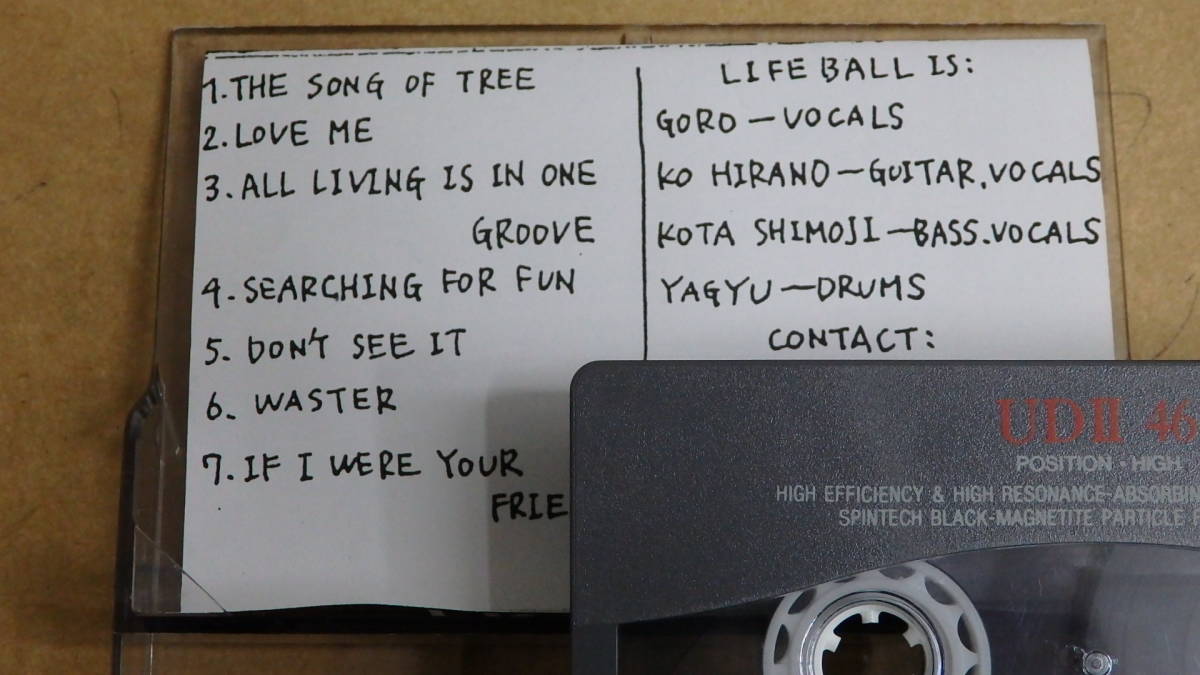 1. THE SONG OF TREE
2. LOVE ME
3. ALL LIVING IS IN ONE
GROOVE
4. SEARCHING FOR FUN
5. DON'T SEE IT
6. WASTER
7. IF I WERE YOUR
FRIE
LIFE BALL IS:
GORO — VOCALS
KO HIRANO — GUITAR, VOCALS
KOTA SHIMOJI — BASS. VOCALS
YAGYU — DRUMS
CONTACT:
UDII 46
POSITION · HIGH
HIGH EFFICIENCY & HIGH RESONANCE-ABSORBI
SPINTECH BLACK-MAGNETITE PARTICLE